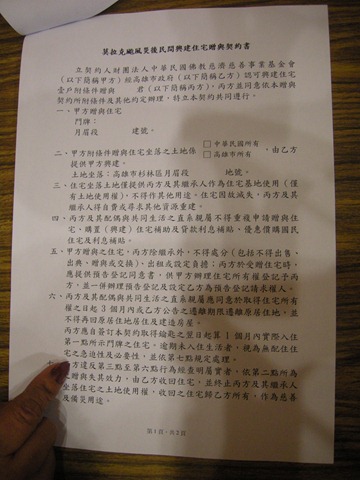 莫拉克颱風災後民間興建住宅贈與契約書
立契約人財團法人中華民國佛教慈濟慈善事業基金會
（以下簡稱甲方）經高雄市政府（以下簡稱乙方）認可興建住宅
壹戶附條件贈與　　　君（以下簡稱丙方），丙方並同意依本贈與
契約所附條件及其他約定辦理，特立本契約共同遵行。
一、甲方贈與住宅
門牌：
月眉段　　　建號。
二、甲方附條件贈與住宅坐落之土地係 □中華民國所有 □高雄市所有 ，由乙方
提供甲方興建。
土地坐落：高雄市杉林區月眉段　　　地號。
三、住宅坐落土地僅提供丙方及其繼承人作為住宅基地使用（僅
有土地使用權），不得作其他用途。住宅因故滅失，丙方及其
繼承人得自費或尋求其他資源重建。
四、丙方及其配偶與共同生活之直系親屬不得重複申請贈與住
宅、購置（興建）住宅補助及貸款利息補貼、優惠價購國民
住宅及利息補貼。
五、甲方贈與之住宅，丙方除繼承外，不得處分（包括不得出售、
出典、贈與或交換）、出租或設定負擔；丙方於受贈住宅時，
應提供預告登記同意書，供甲方辦理住宅所有權登記予丙
方，並一併辦理預告登記及設定乙方為預告登記請求權人。
六、丙方及其配偶與共同生活之直系親屬應同意於取得住宅所有
權之日起 3 個月內或乙方公告之遷離期限遷離原居住地，並
不得再回原居住地居住及建造房屋。
丙方應自簽訂本契約取得鑰匙之翌日起算 1 個月內實際入住
第一點所示門牌之住宅，逾期未入住生活者，視為無配住住
宅之急迫性及必要性，並依第七點規定處理。
方違反第三點至第六點行為經查明屬實者，依第二點所為
之贈與失其效力，由乙方收回住宅，並終止丙方及其繼承人
坐落住宅之土地使用權，收回之住宅歸乙方所有，作為慈善
及備災用途。
第 1 頁，共 2 頁